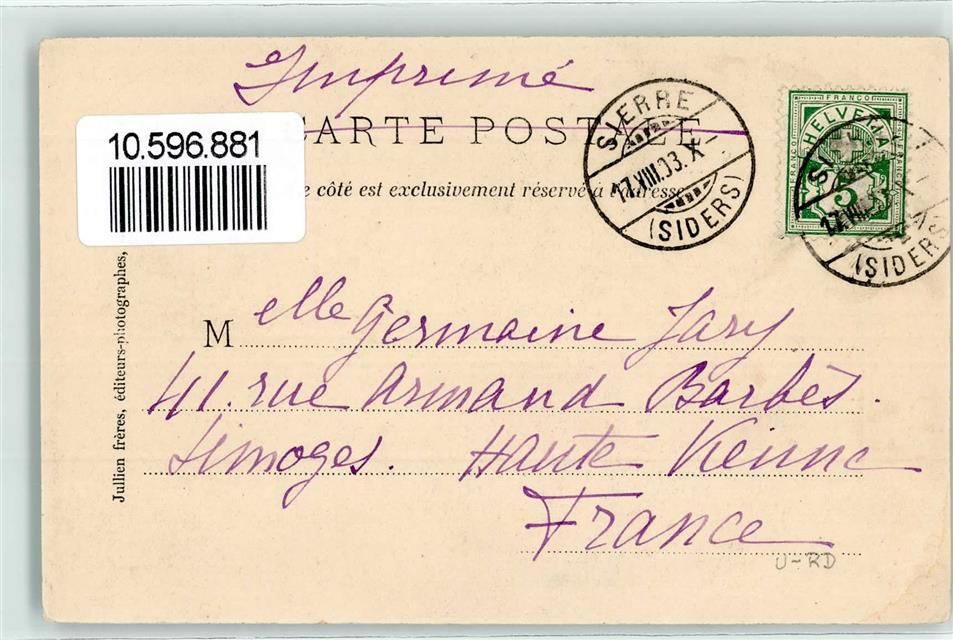 Imprimé
10.596.881
CARTE POSTALE
côté est exclusivement réservé à l'adresse
SIERRE
17.VIII.03.X
(SIDERS)
FRANCO
HELVETIA
FRANCO
5
17.VIII.
(SIDERS)
Jullien frères, éditeurs-photographes,
Melle Germaine Jary
41. rue Armand Barbès.
Limoges. Haute Vienne
France
U-RD